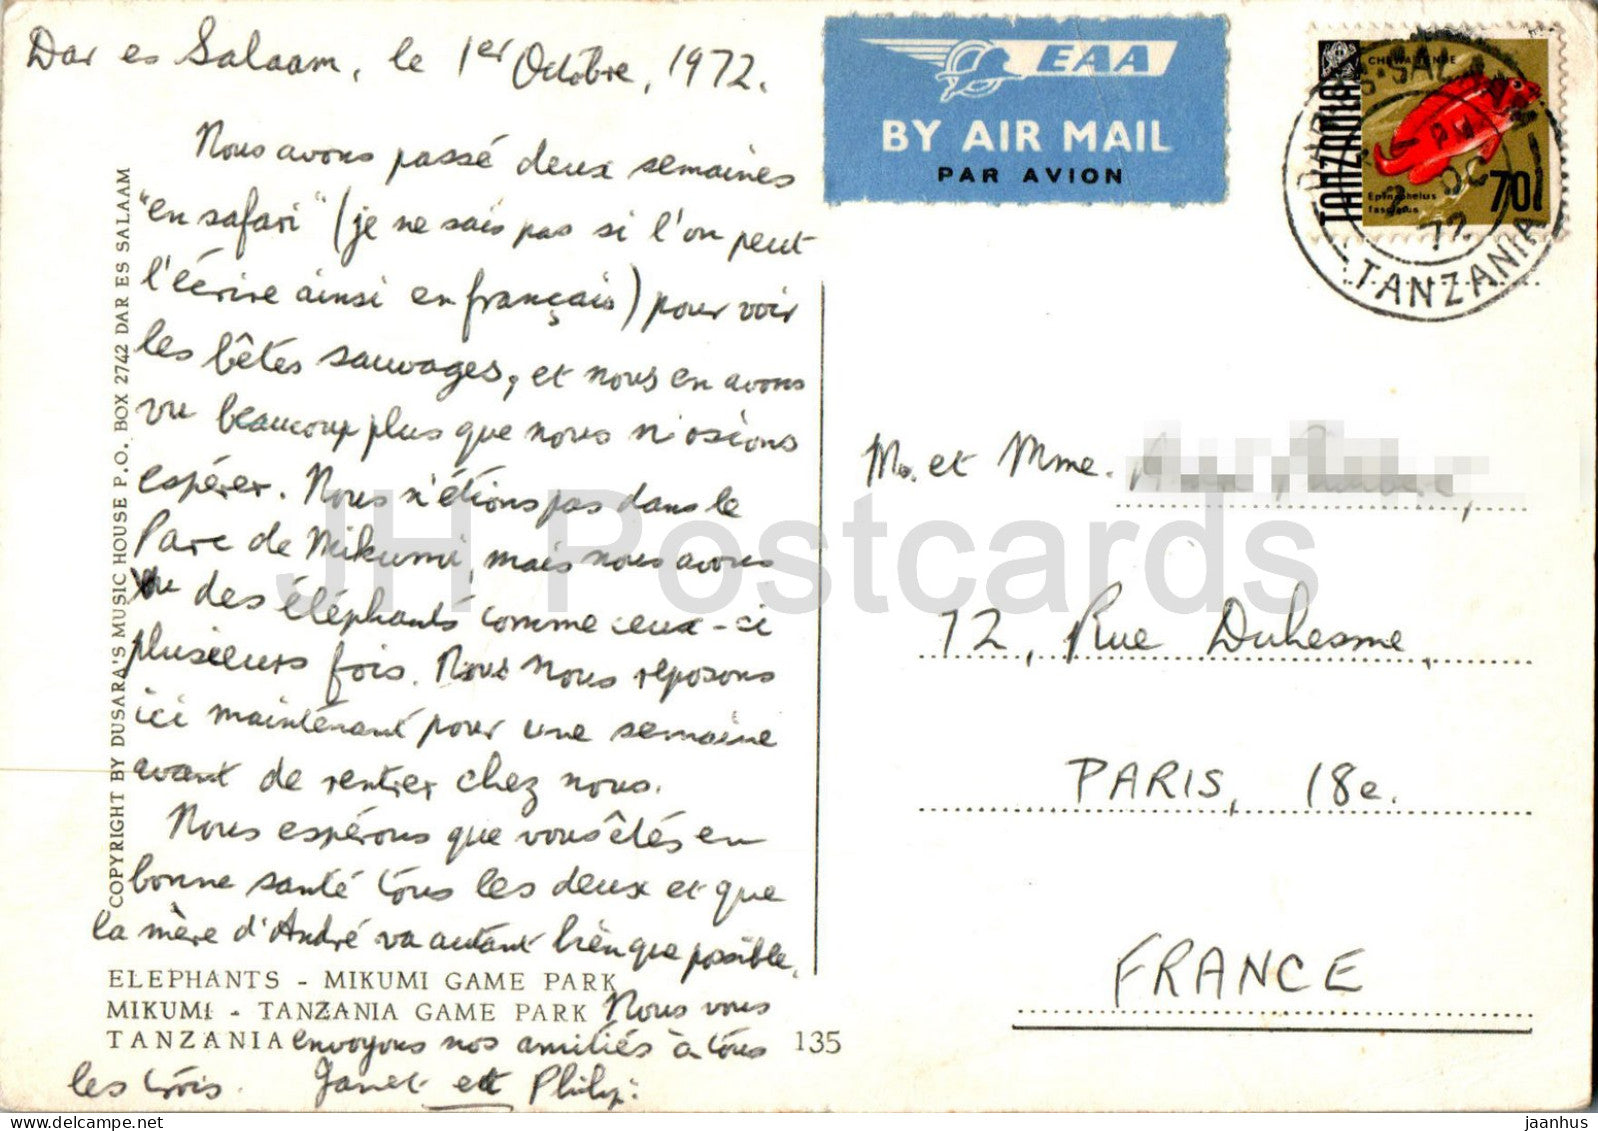 Dar es Salaam, le 1er Octobre, 1972.
Nous avons passé deux semaines
"en safari" (je ne sais pas si l'on peut
l'écrire ainsi en français) pour voir
les bêtes sauvages, et nous en avons
vu beaucoup plus que nous n'osions
espérer. Nous n'étions pas dans le
Parc de Mikumi, mais nous avons
vu des éléphants comme ceux-ci
plusieurs fois. Nous nous reposons
ici maintenant pour une semaine
avant de rentrer chez nous.
Nous espérons que vous êtes en
bonne santé tous les deux et que
la mère d'André va autant bien que possible.
Nous vous
envoyons nos amitiés à tous
les trois. Janet et Philip.
ELEPHANTS - MIKUMI GAME PARK
MIKUMI - TANZANIA GAME PARK
TANZANIA
135
COPYRIGHT BY DUSARA'S MUSIC HOUSE P.O. BOX 2742 DAR ES SALAAM
EAA
BY AIR MAIL
PAR AVION
TANZANIA
70
Epinephelus
fasciatus
TANZANIA
72
M. et Mme.
12, Rue Duhesme,
PARIS, 18e.
FRANCE
JH Postcards
jaanhus @ delcampe.net